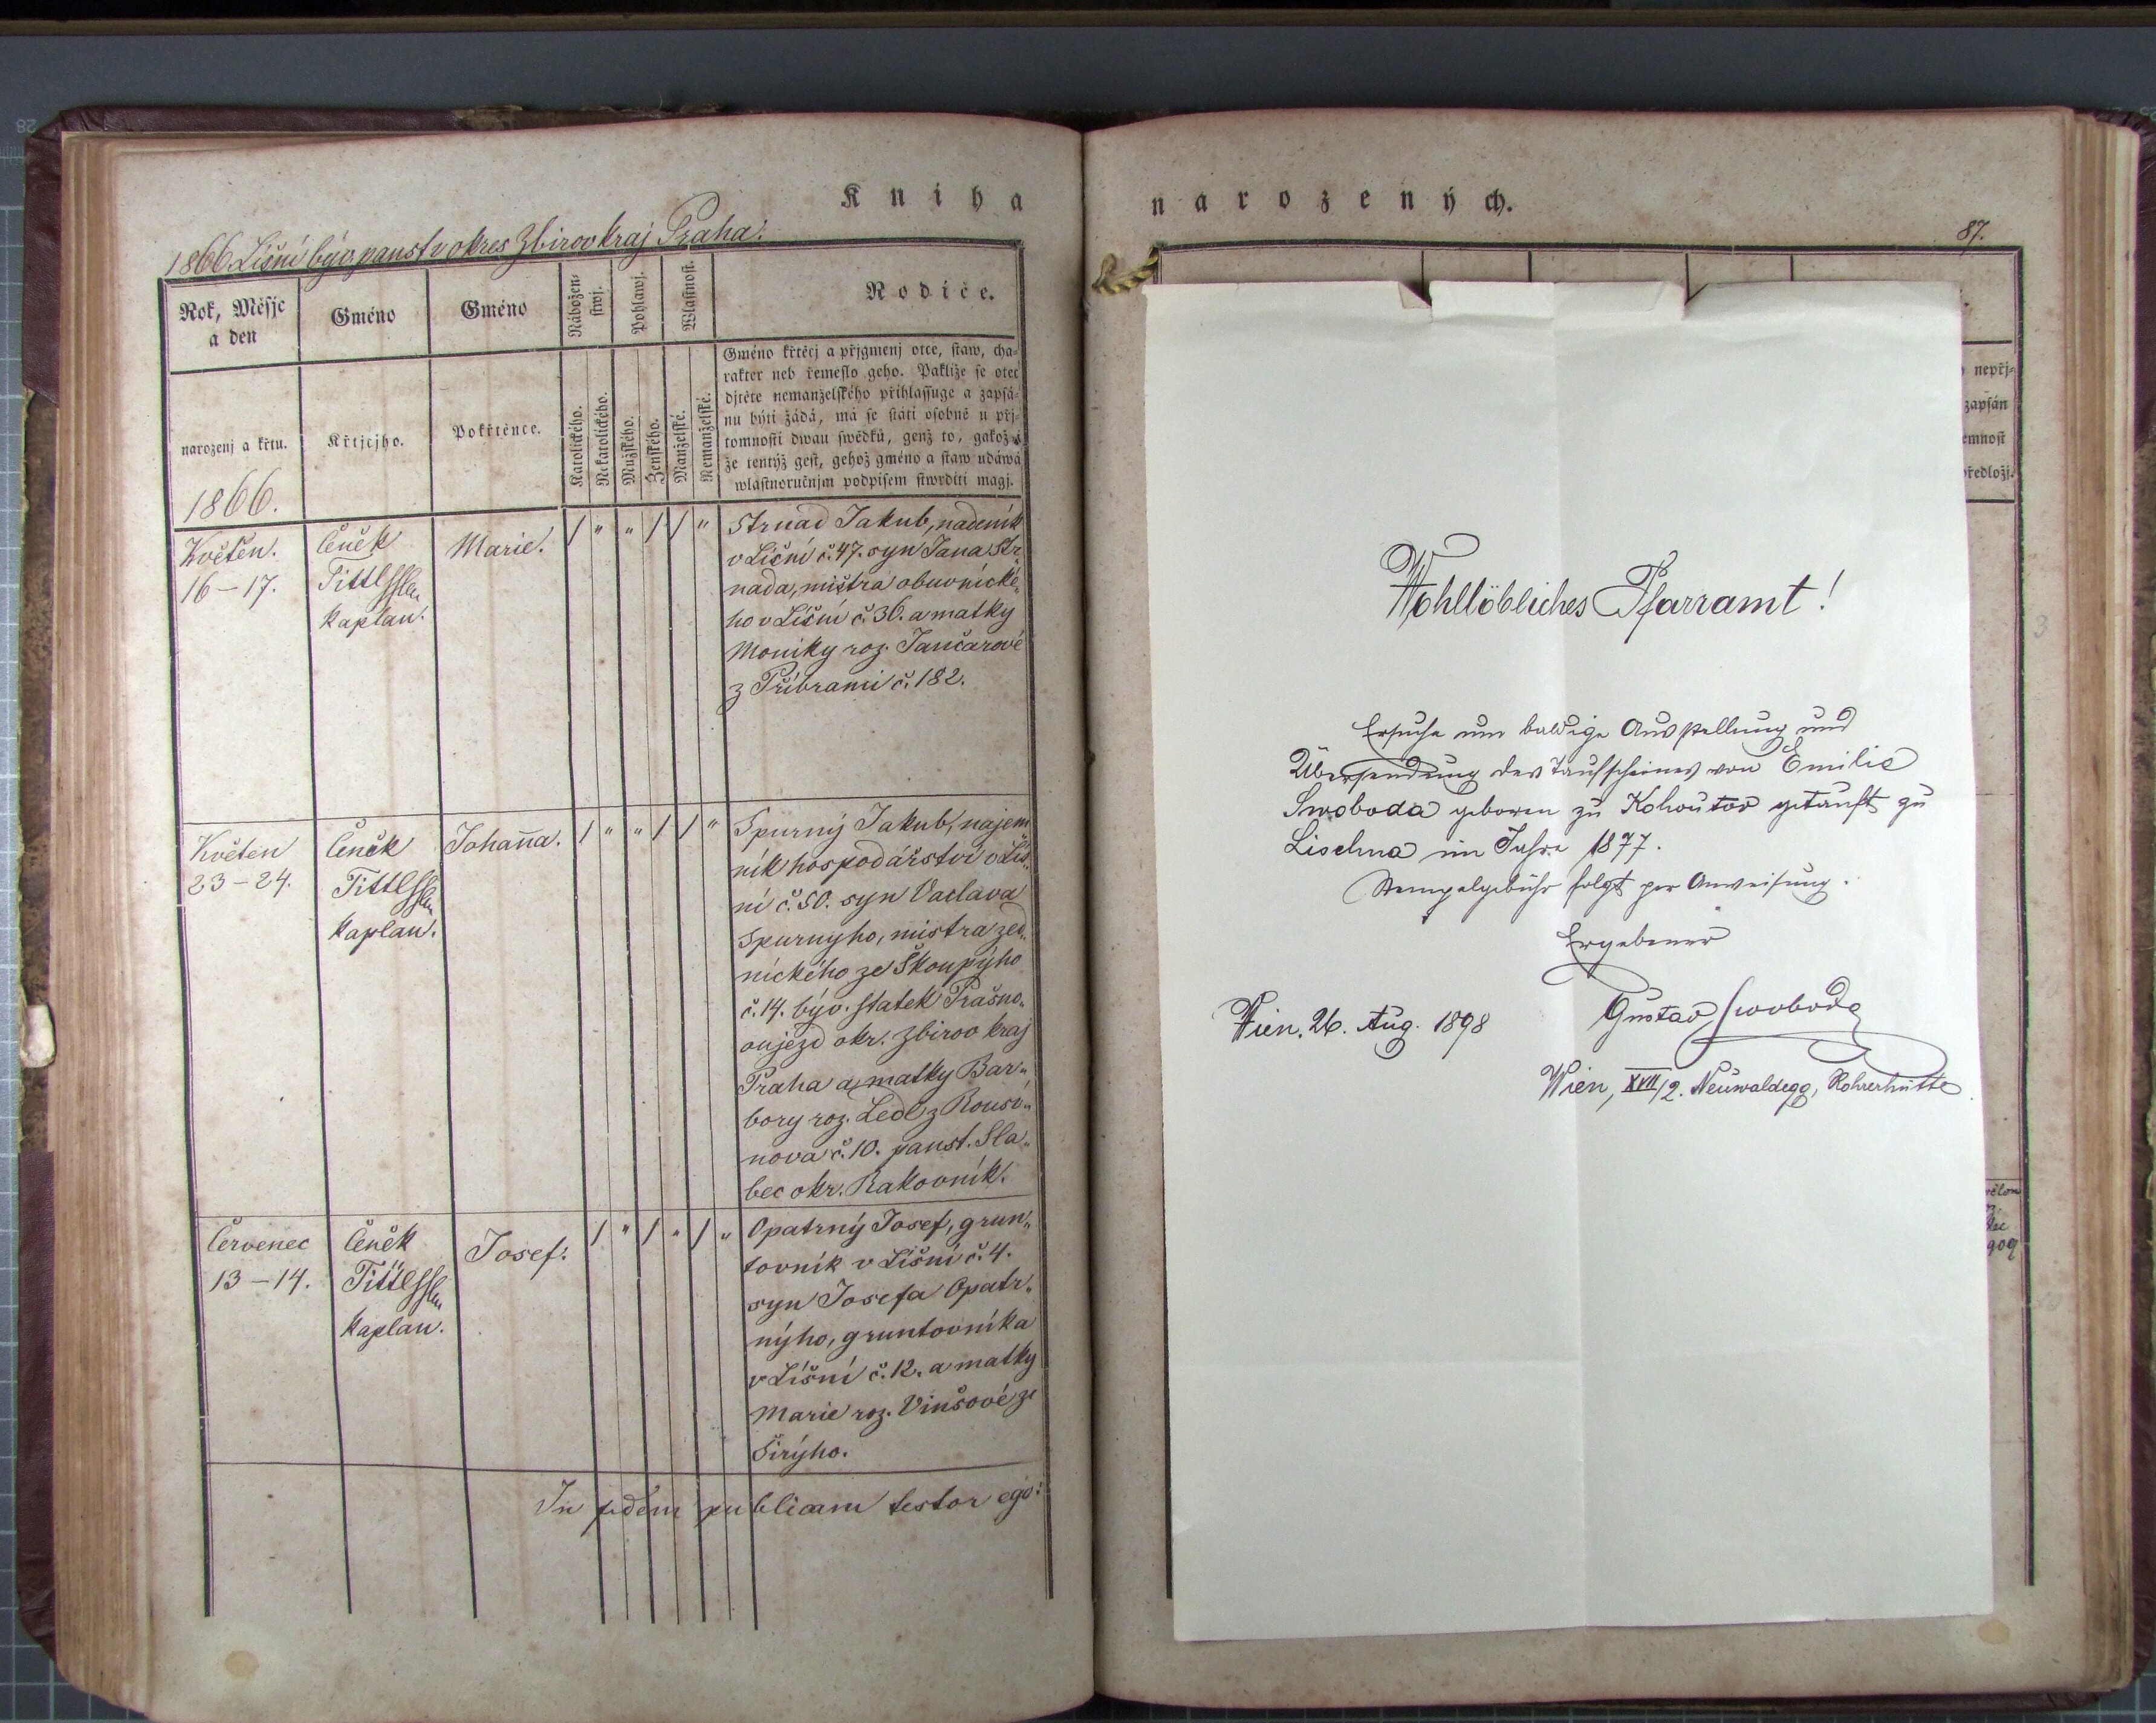 Kniha
1866 Líšní býv. panstv okres Zbirov kraj Praha.
Rok, Měsjc a den
Gméno
Gméno
Nábožen-stwj.
Pohlawj.
Wlastnost.
Rodiče.
narozenj a křtu.
1866.
Křtjcjho.
Pokřtěnce.
Katolického.
Nekatolického.
Mužského.
Ženského.
Manželské.
Nemanželské.
Gméno křtěcj a přjgmenj otce, staw, cha-
rakter neb řemeslo geho. Pakliže se otec
djtěte nemanželského přihlassuge a zapsá-
nu býti žádá, má se státi osobně u přj-
tomnosti dwau swědků, genž to, gakož i
že tentýž gest, gehož gméno a staw udáwá
wlastnoručnjm podpisem stwrditi magj.
Květen.
16–17.
Čeněk
Kaplan.
Marie.
/ " " / / "
Strnad Jakub, nadeník
v Líšní č. 47. syn Jana Str„
nada, mistra obuvnické„
ho v Líšní č. 36. a matky
Moniky roz. Jančarové
z Příbrami č. 182.
Květen
23–24.
Čeněk
Kaplan.
Johan̄a.
/ " " / / "
Spurný Jakub, najem„
ník hospodářství v Líš„
ní č. 50. syn Vaclava
Spurnyho, mistra zed„
nického ze Skoupýho
č. 14. býv. statek Prašno„
oujezd okr. Zbirov kraj
Praha a matky Bar„
bory roz. Ledl z Rousi„
nova č. 10. panst. Sla„
bec okr. Rakovník.
Červenec
13–14.
Čeněk
Kaplan.
Josef.
/ " / " / "
Opatrný Josef, grun„
tovník v Líšní č. 4.
syn Josefa Opatr„
nýho, gruntovníka
v Líšní č. 12. a matky
Marie roz. Vinšové ze
Širýho.
In fidem publicam testor ego:
narozených.
87.
nepřj-
zapsán
emnost
předložj.
909
Wohllöbliches Pfarramt!
Ersuche um baldige Ausstellung und
Übersendung des Taufscheines von Emilie
Swoboda geboren zu Kohoutov getauft zu
Lischna im Jahre 1877.
Stempelgebühr folgt per Anweisung.
Ergebener
Gustav Swoboda
Wien, 26. Aug. 1898
Wien, XVII/2. Neuwaldegg, Rohrerhütte